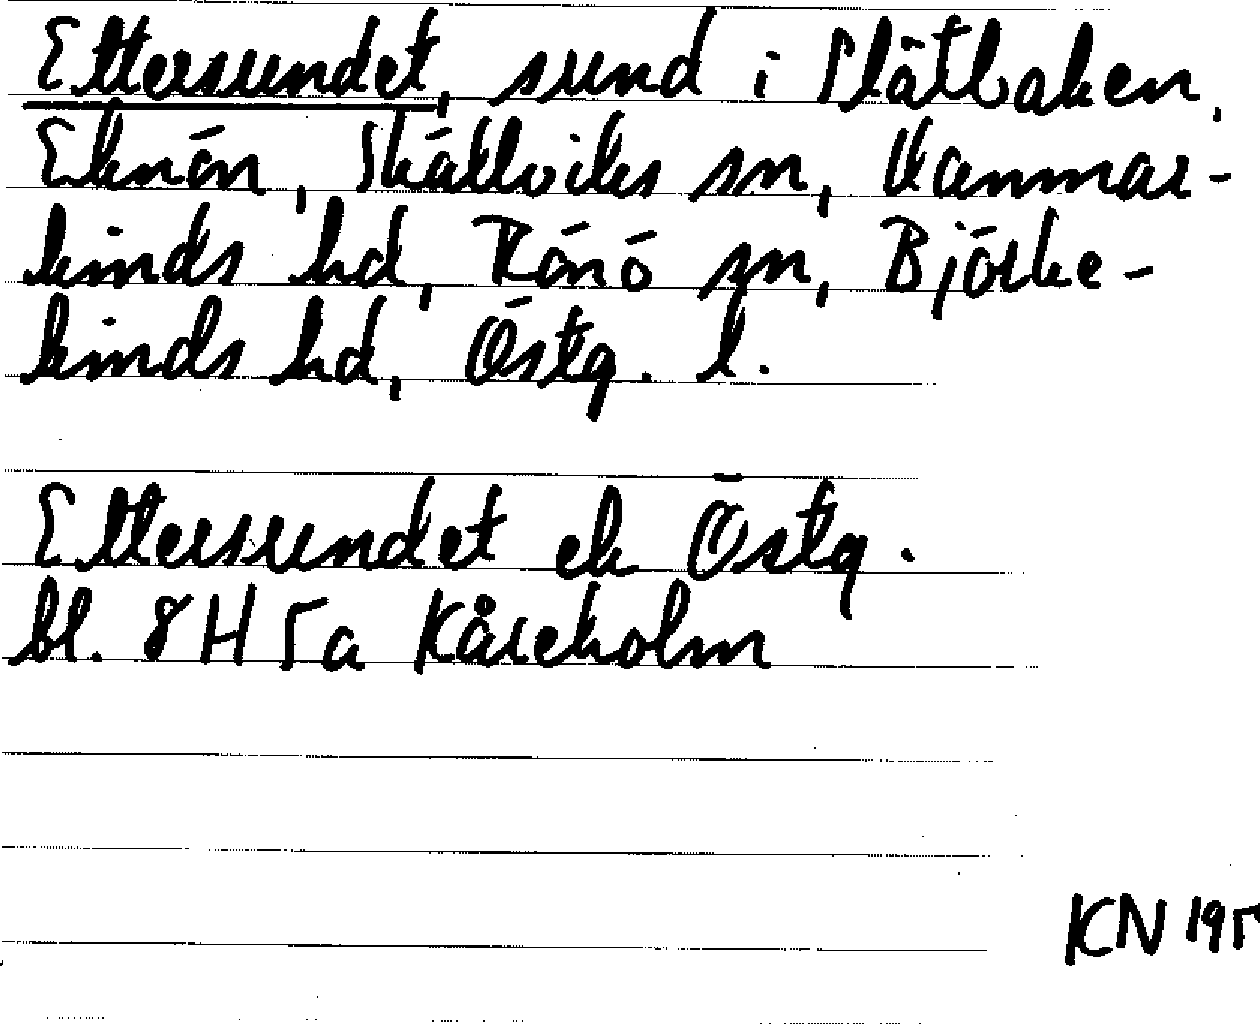 Ettersundet, sund i Slätbaken,
Eknön, Skällviks sn, Hammar-
kinds hd, Rönö sn, Björke-
kinds hd, Östg. l.
Ettersundet ek Östg.
bl. 8H 5a Kåreholm
KN 195